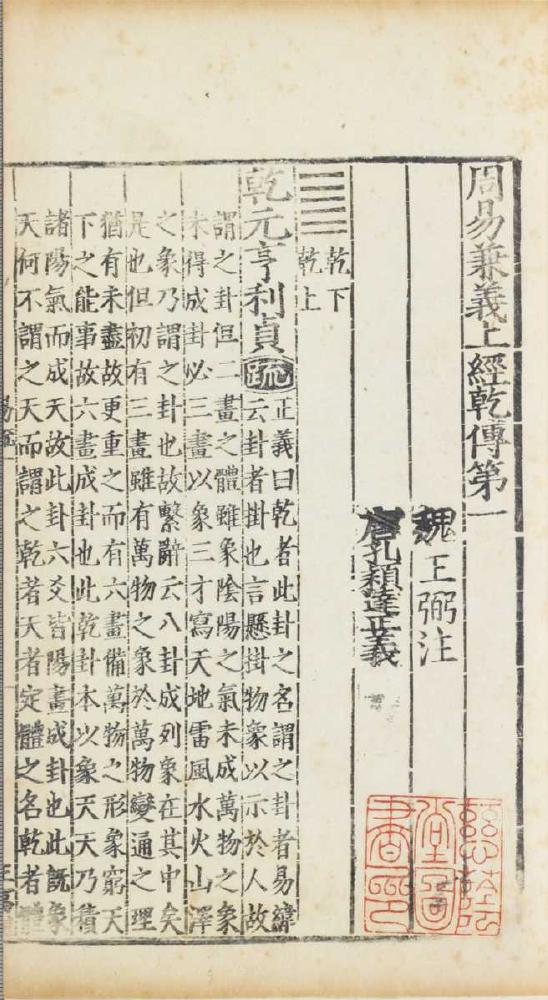 周易兼義上經乾傳第一
魏王弼注
唐孔穎達正義
䷀乾下
乾上
乾元亨利貞疏正義曰乾者此卦之名謂之卦者易緯
云卦者掛也言懸掛物象以示於人故
謂之卦但二畫之體雖象陰陽之氣未成萬物之象
未得成卦必三畫以象三才寫天地雷風水火山澤
之象乃謂之卦也故繫辭云八卦成列象在其中矣
是也但初有三畫雖有萬物之象於萬物變通之理
猶有未盡故更重之而有六畫備萬物之形象窮天
下之能事故六畫成卦也此乾卦本以象天天乃積
諸陽氣而成天故此卦六爻皆陽畫成卦也此既象
天何不謂之天而謂之乾者天者定體之名乾者體